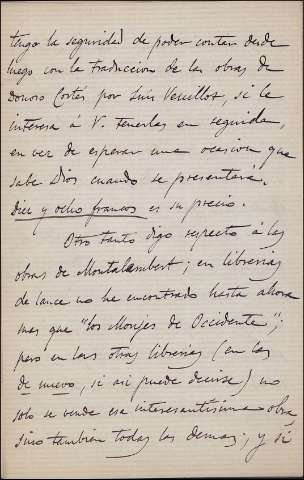 tengo la seguridad de poder contar desde
luego con la traduccion de las obras de
Donoso Cortés por Luis Veuillot, si le
interesa á V. tenerlas en seguida,
en vez de esperar una ocasion que
sabe Dios cuando se presentará.
Diez y ocho francos es su precio.
Otro tanto digo respecto á las
obras de Montalembert; en librerias
de lance no he encontrado hasta ahora
mas que "Los Monjes de Occidente";
pero en las otras librerias (en las
de nuevo, si asi puede decirse) no
solo se vende esa interesantísima obra,
sino tambien todas las demas; y si